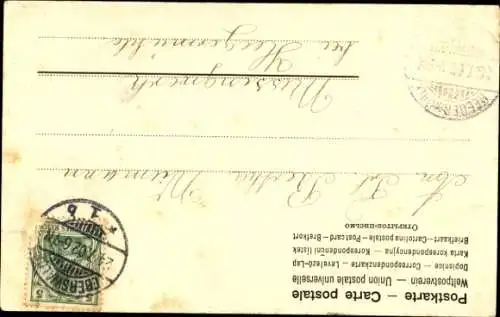 Postkarte — Carte postale
Weltpostverein — Union postale universelle
Dopisnice — Correspondenzkarte — Levelező-Lap
Karta korespondencyjna — Korespondenční lístek
Briefkaart — Cartolina postale — Postcard — Brefkort
ОТКРЫТОЕ-ПИСЬМО
An Frl. Bertha Niemann
Messingwerk
bei Heegermühle
EBERSWALDE
5